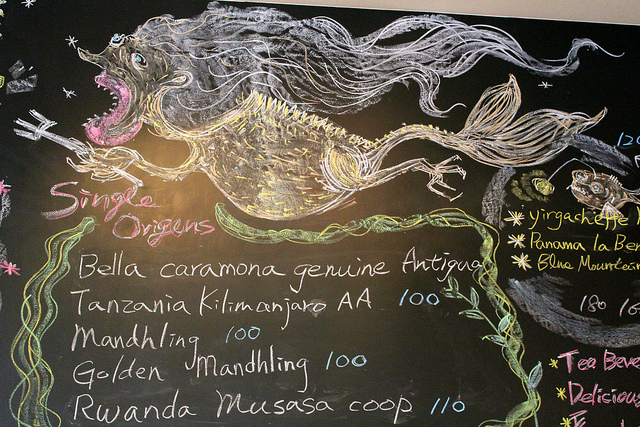 Single
Origens
Bella caramona genuine Antigua
Tanzania Kilimanjaro AA 100
Mandhling 100
Golden Mandhling 100
Rwanda Musasa coop 110
120
* yirgacheffe
* Panama la Ber
* Blue Mountain
180 16
* Tea Beve
* Delicious
*